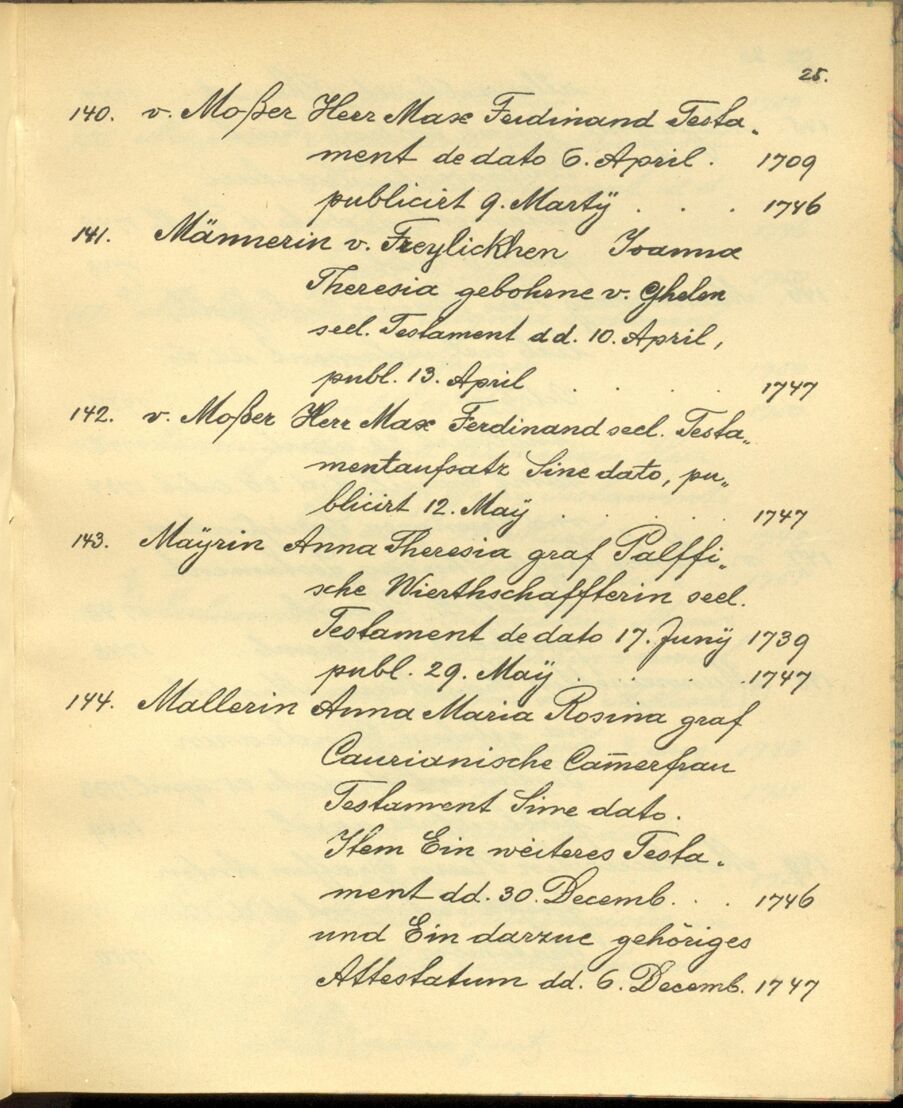 25.
140. v. Moßer Herr Max Ferdinand Testa„
ment de dato 6. April. 1709
publicirt 9. Martÿ . . . 1746
141. Männerin v. Freylickhen Joanna
Theresia gebohrne v. Ghelen
seel. Testament dd. 10. April,
publ. 13. April . . . . 1747
142. v. Moßer Herr Max Ferdinand seel. Testa„
mentaufsatz Sine dato, pu„
blicirt 12. Maÿ . . . . 1747
143. Maÿrin Anna Theresia graf Palffi„
sche Wierthschaffterin seel.
Testament de dato 17. Junÿ 1739
publ. 29. Maÿ . . . . 1747
144. Mallerin Anna Maria Rosina graf
Caurianische Cam̄erfrau
Testament Sine dato.
Item Ein weiteres Testa„
ment dd. 30. Decemb. . . 1746
und Ein darzue gehöriges
Attestatum dd. 6. Decemb. 1747